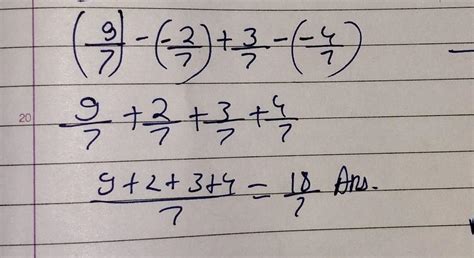 (9/7) - (-2/7) + 3/7 - (-4/7)
20
9/7 + 2/7 + 3/7 + 4/7
9+2+3+4/7 = 18/7 Ans.